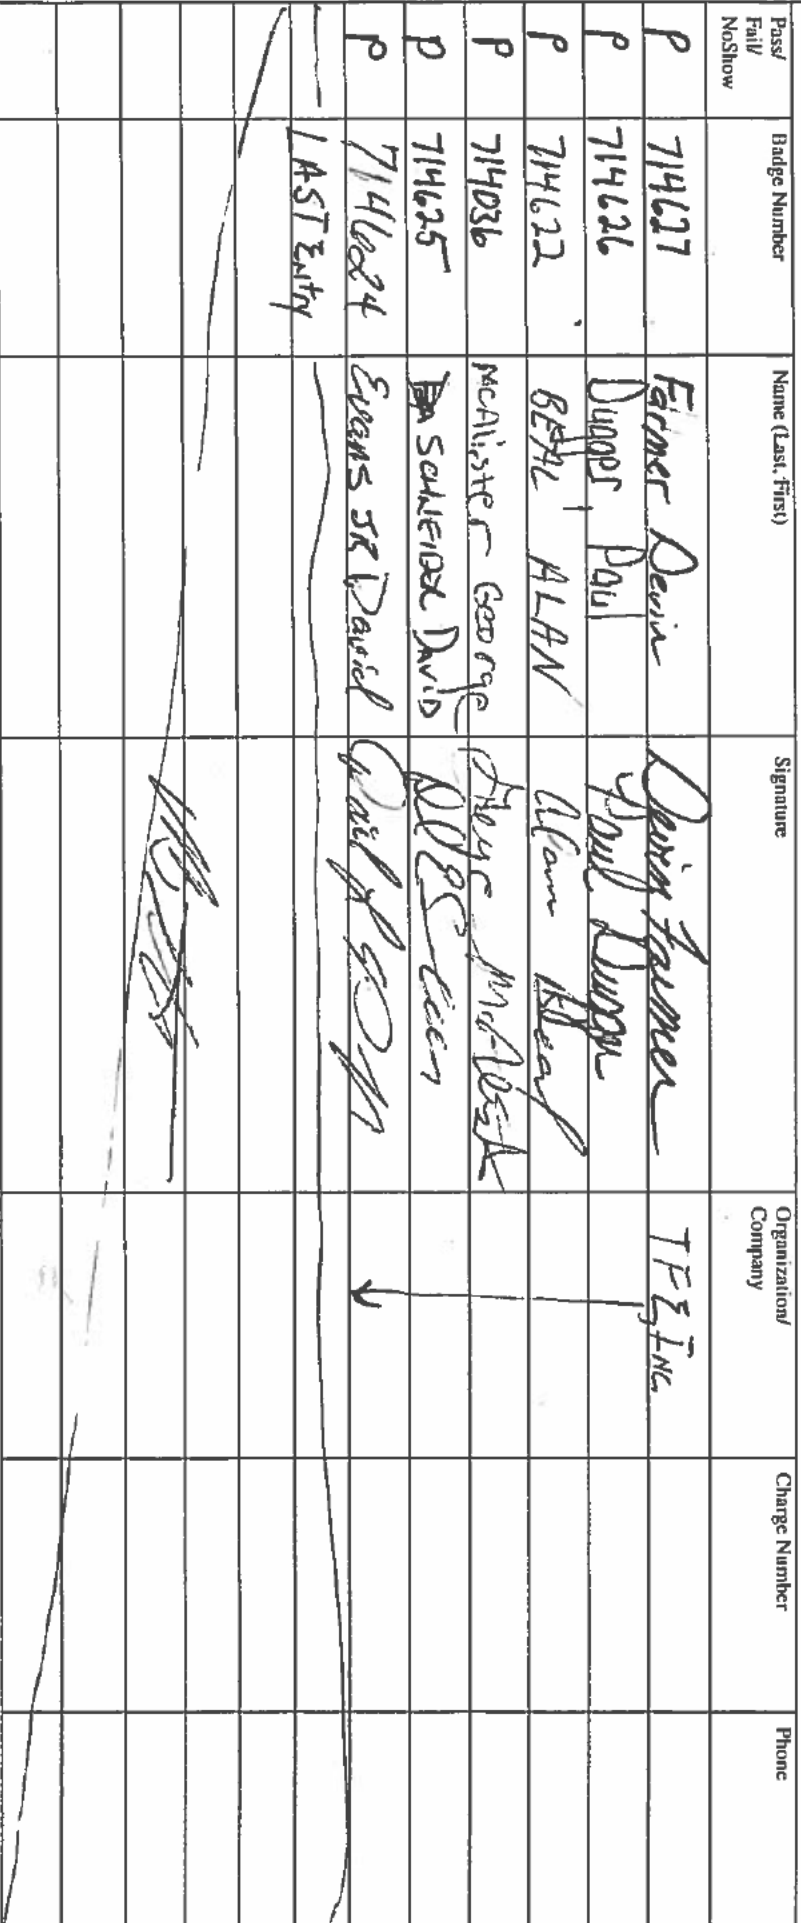 Pass/ Fail/ NoShow Badge Number Name (Last, First) Signature Organization/ Company Charge Number Phone
P 714627 Farmer Devin Devin Farmer TFE Inc.
P 714626 Paul Paul
P 714622 BEAL, ALAN Alan Beal
P 714036 McAlister George
P 714625 SCHNEIDER DAVID
P 714624 Evans JR David
LAST Entry